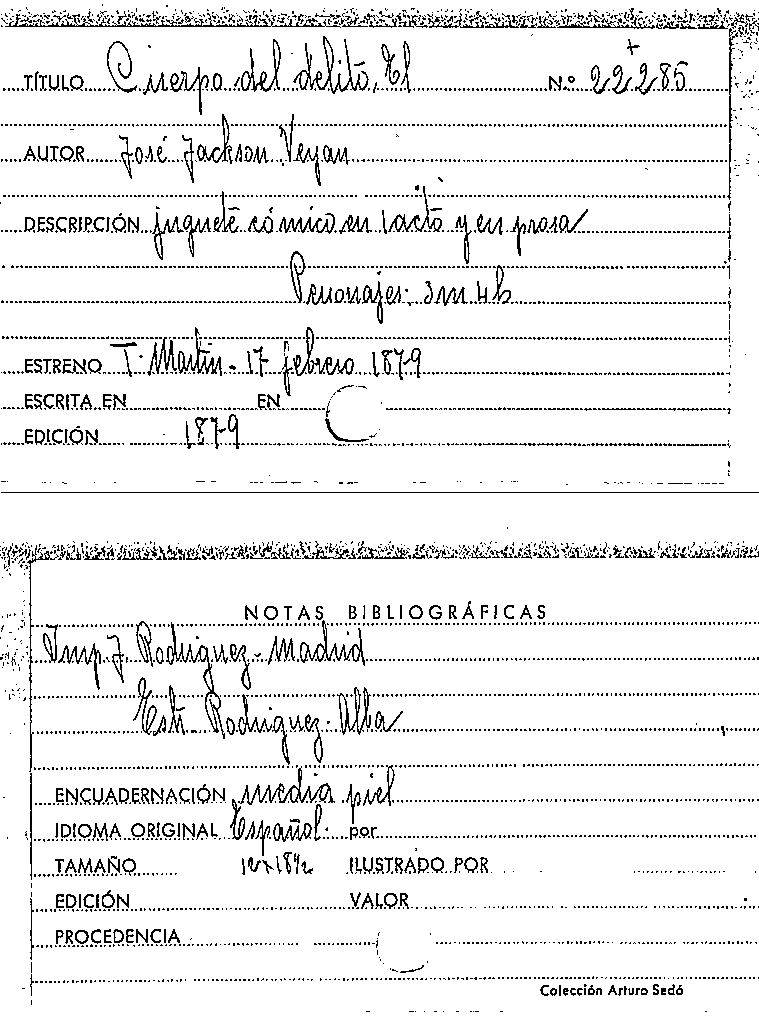 TÍTULO Cuerpo del delito, El N.º 22285
AUTOR José Jackson Veyan
DESCRIPCIÓN juguete cómico en 1 acto y en prosa
Personajes: 3m 4h
ESTRENO T. Martin - 17 febrero 1879
ESCRITA EN EN
EDICIÓN 1879
NOTAS BIBLIOGRÁFICAS
Imp. J. Rodriguez - Madrid
Estr. Rodriguez - Alba
ENCUADERNACIÓN media piel
IDIOMA ORIGINAL Español. por
TAMAÑO ILUSTRADO POR
EDICIÓN VALOR
PROCEDENCIA
Colección Arturo Sedó